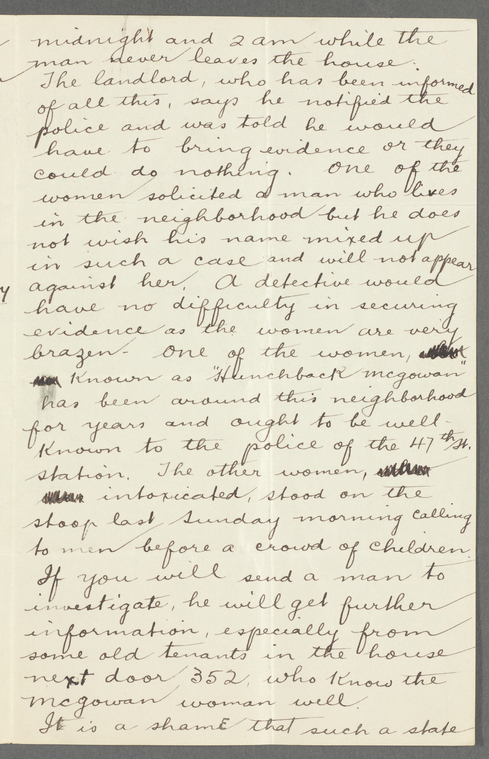 midnight and 2 am while the
man never leaves the house.
The landlord, who has been informed
of all this, says he notified the
police and was told he would
have to bring evidence or they
could do nothing. One of the
women solicited a man who lives
in the neighborhood but he does
not wish his name mixed up
in such a case and will not appear
against her. A detective would
y
have no difficulty in securing
evidence as the women are very
brazen - One of the women,
Known as "Hunchback McGowan"
has been around this neighborhood
for years and ought to be well-
Known to the police of the 47th St.
station. The other women,
intoxicated, stood on the
stoop last Sunday morning calling
to men before a crowd of children.
If you will send a man to
investigate, he will get further
information, especially from
some old tenants in the house
next door 352, who Know the
McGowan woman well.
It is a shame that such a state